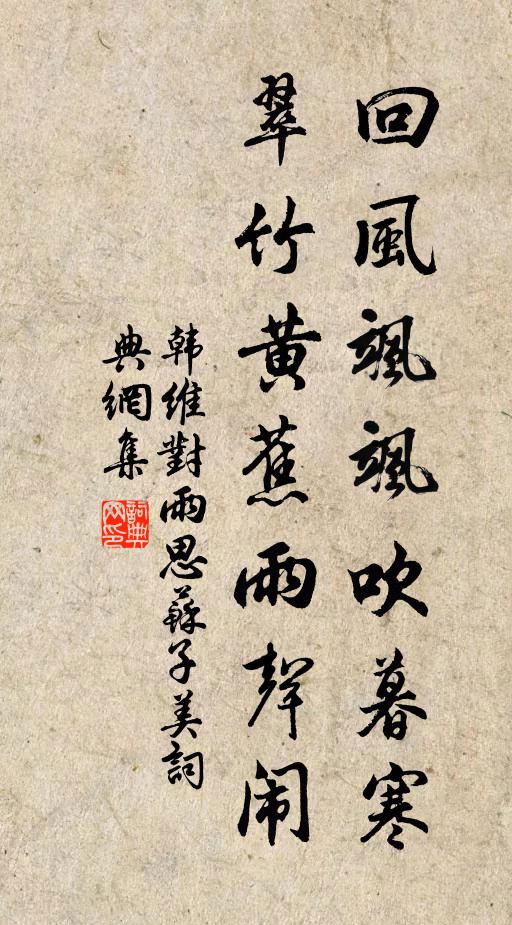 回風颯颯吹暮寒
翠竹黄蕉雨聲闹
韩維對雨思蘇子美詞
典網集
詞典網印